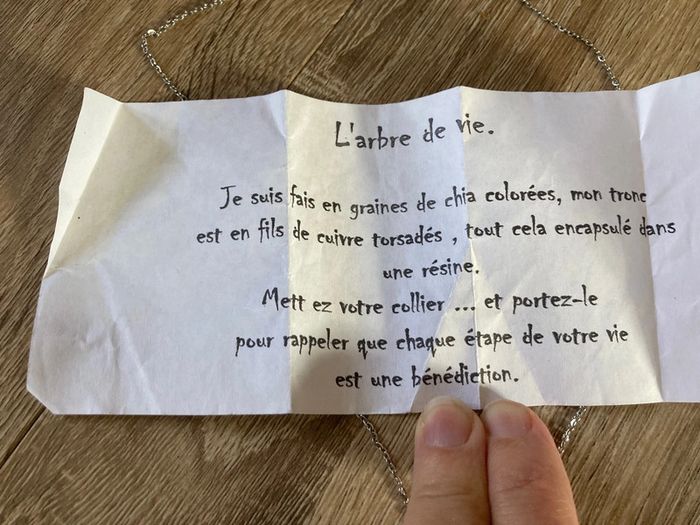 L'arbre de vie.
Je suis fais en graines de chia colorées, mon tronc
est en fils de cuivre torsadés , tout cela encapsulé dans
une résine.
Mett ez votre collier ... et portez-le
pour rappeler que chaque étape de votre vie
est une bénédiction.